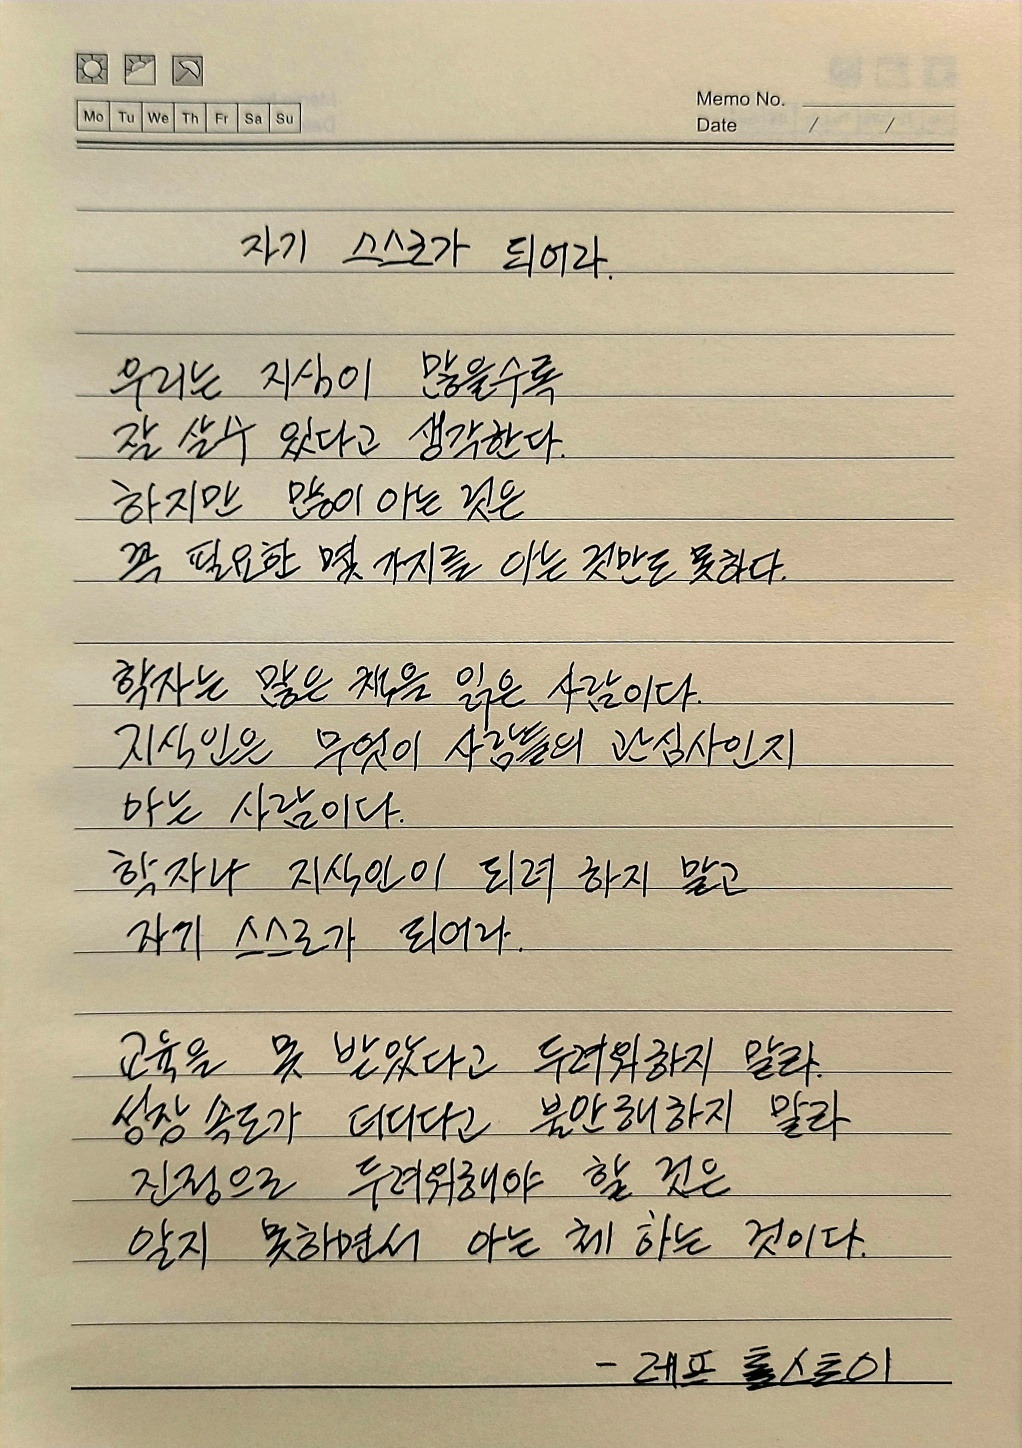 Mo Tu We Th Fr Sa Su
Memo No.
Date / /
자기 스스로가 되어라.
우리는 지식이 많을수록
잘 살수 있다고 생각한다.
하지만 많이 아는 것은
꼭 필요한 몇 가지를 아는 것만도 못하다.
학자는 많은 책을 읽은 사람이다.
지식인은 무엇이 사람들의 관심사인지
아는 사람이다.
학자나 지식인이 되려 하지 말고
자기 스스로가 되어라.
교육을 못 받았다고 두려워하지 말라.
성장 속도가 더디다고 불안해하지 말라
진정으로 두려워해야 할 것은
알지 못하면서 아는 체 하는 것이다.
- 레프 톨스토이